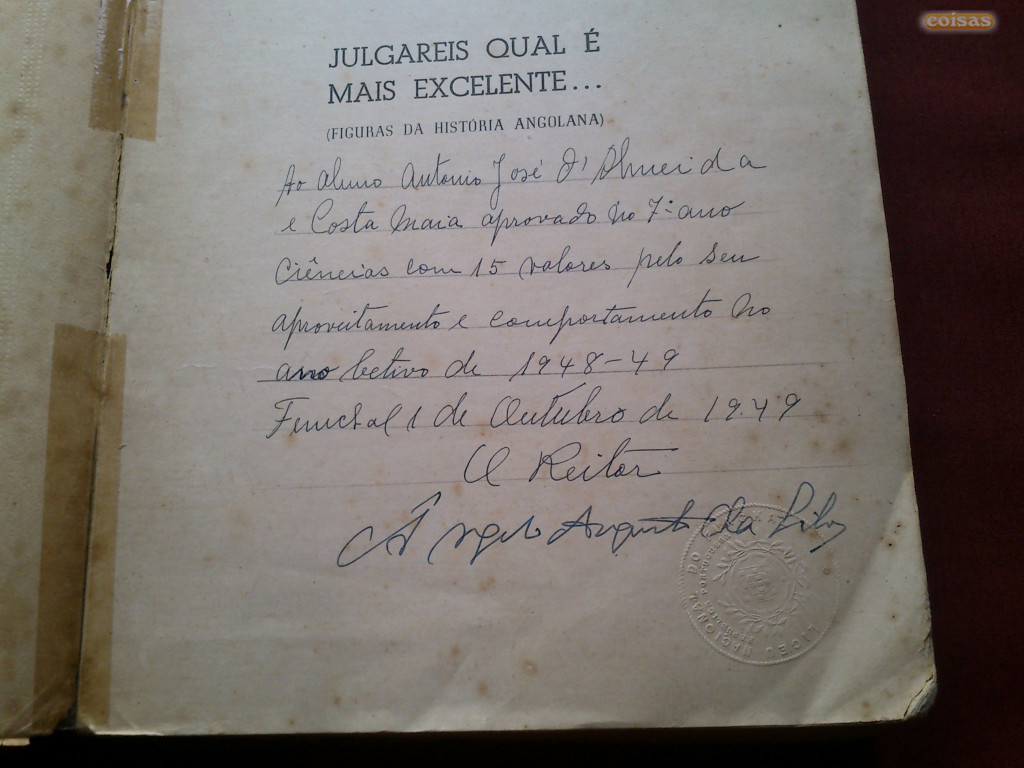 coisas
JULGAREIS QUAL É
MAIS EXCELENTE...
(FIGURAS DA HISTÓRIA ANGOLANA)
Ao aluno Antonio José d'Almeida
e Costa Maia aprovado no 7º ano
Ciências com 15 valores pelo seu
aproveitamento e comportamento no
ano letivo de 1948-49
Funchal 1 de Outubro de 1949
O Reitor
Ângelo Augusto da Silva
LICEU NACIONAL DO